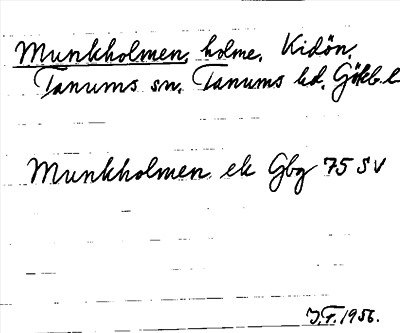 Munkholmen, holme, Kidön,
Tanums sn, Tanums hd, Gökb.l
Munkholmen ek Gbg 75 SV
J.F. 1956.